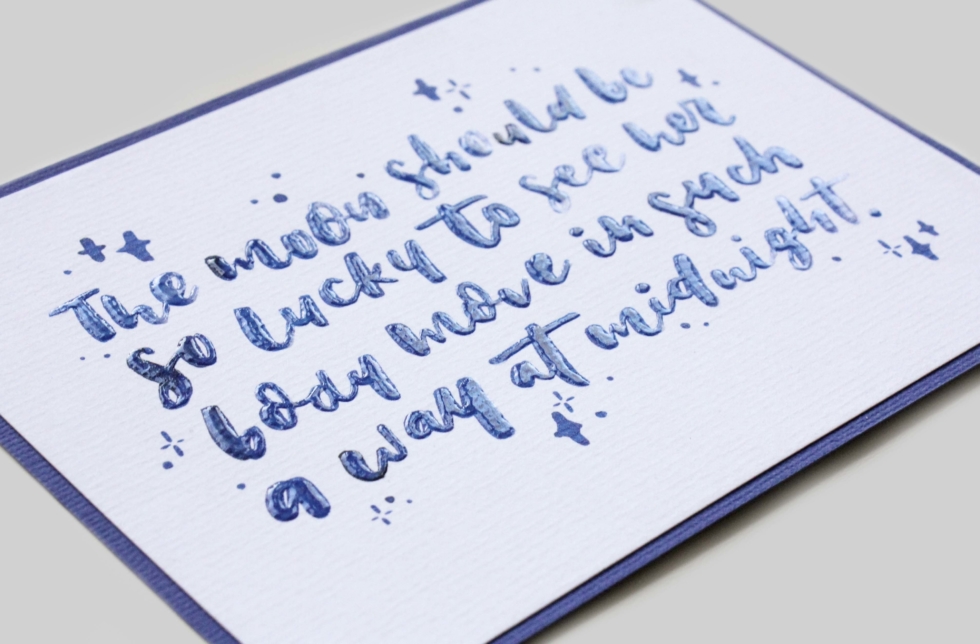 The moon should be
so lucky to see her
body move in such
a way at midnight.